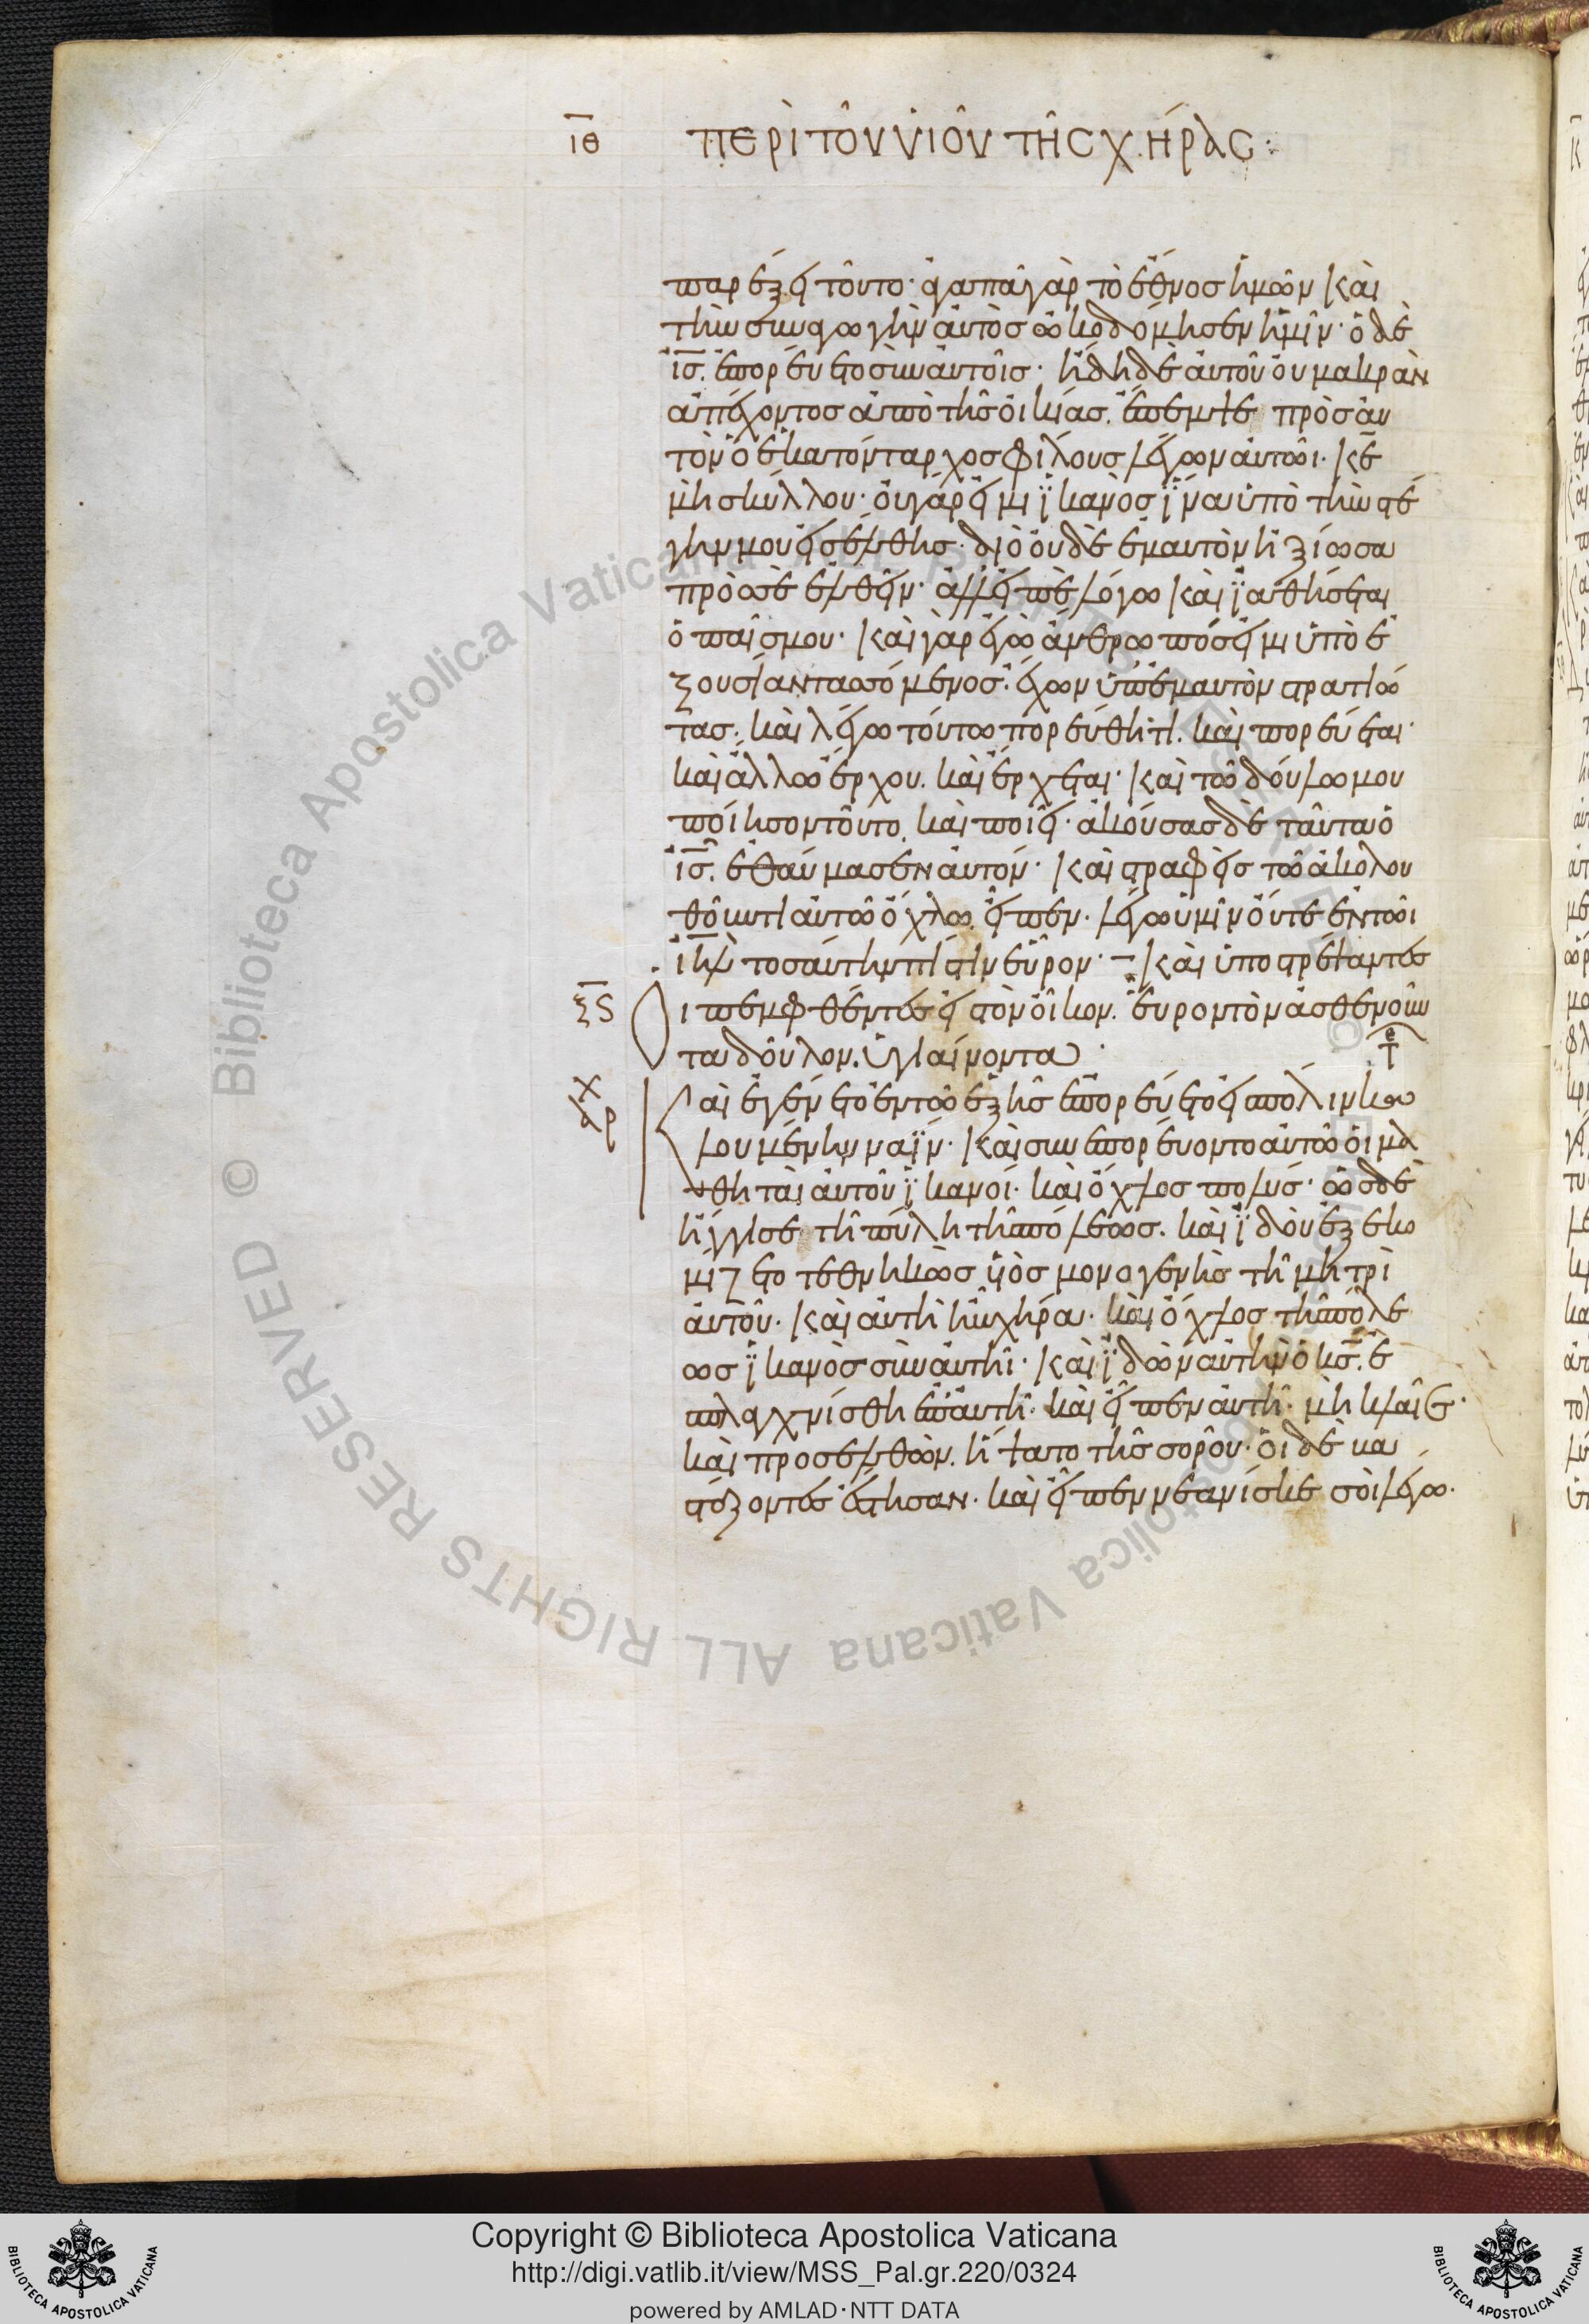 ΙΘ ΠΕΡῚ ΤΟΥ͂ ΥἹΟΥ͂ ΤΗ͂Σ ΧΉΡΑΣ:
παρέξει τοῦτο· ἀγαπᾶ γὰρ τὸ ἔθνος ἡμῶν καὶ
τὴν συναγωγὴν αὐτὸς ὠκοδόμησεν ἡμῖν· ὁ δὲ
ις. ἐπορεύετο σὺν αὐτοῖς· ἤδη δὲ αὐτοῦ οὐ μακρὰν
ἀπέχοντος ἀπὸ τῆς οἰκίας. ἔπεμψε πρὸς αὐ
τὸν ὁ ἑκατόνταρχος φίλους λέγων αὐτῶι· κε
μὴ σκύλλου· οὐ γάρ εἰμι ἱκανὸς ἵνα ὑπὸ τὴν στέ
γην μου εἰσέλθης· διὸ οὐδὲ ἐμαυτὸν ἠξίωσα
πρὸς σὲ ἐλθεῖν· ἀλλ εἰπὲ λόγω καὶ ἰαθήσεται
ὁ παῖς μου· καὶ γὰρ ἐγὼ ἄνθρωπός εἰμι ὑπὸ ἐ
ξουσίαν τασσόμενος· ἔχων ὑπ ἐμαυτὸν στρατιώ
τας· καὶ λέγω τούτω πορεύθητι. καὶ πορεύεται·
καὶ ἄλλω ἔρχου. καὶ ἔρχεται· καὶ τῶ δούλω μου
ποίησον τοῦτο καὶ ποιεῖ· ἀκούσας δὲ ταῦτα ὁ
ις. ἐθαύμασεν αὐτόν· καὶ στραφεὶς τῶ ἀκολου
θοῦντι αὐτῶ ὄχλω. εἶπεν· λέγω ὑμῖν οὔτε ἐν τῶι
ιηλ τοσαύτην πίστιν εὗρον· καὶ ὑποστρέψαντες
ξϛ οἱ πεμφθέντες εἰς τὸν οἶκον. εὗρον τὸν ἀσθενοῦν
τα δοῦλον. ὑγιαίνοντα·
Καὶ ἐγένετο ἐν τῶ ἑξῆς ἐπορεύετο εἰς πόλιν κα
λουμένην ναΐν· καὶ συνεπορεύοντο αὐτῶ οἱ μα
θηταὶ αὐτοῦ ἱκανοί· καὶ ὄχλος πολύς· ὡς δὲ
ἤγγισε τῆ πύλη τῆς πόλεως. καὶ ἰδοὺ ἐξεκο
μίζετο τεθνηκὼς υἱὸς μονογενὴς τῆ μητρὶ
αὐτοῦ· καὶ αὐτὴ ἦν χήρα· καὶ ὄχλος τῆς πόλε
ως ἱκανὸς σὺν αὐτῆ· καὶ ἰδὼν αὐτὴν ὁ κς. ἐ
σπλαγχνίσθη ἐπ αὐτῆ· καὶ εἶπεν αὐτῆ· μὴ κλαῖε·
καὶ προσελθὼν. ἥψατο τῆς σοροῦ· οἱ δὲ βα
στάζοντες ἔστησαν· καὶ εἶπεν νεανίσκε σοὶ λέγω·
Copyright © Biblioteca Apostolica Vaticana
http://digi.vatlib.it/view/MSS_Pal.gr.220/0324
powered by AMLAD·NTT DATA